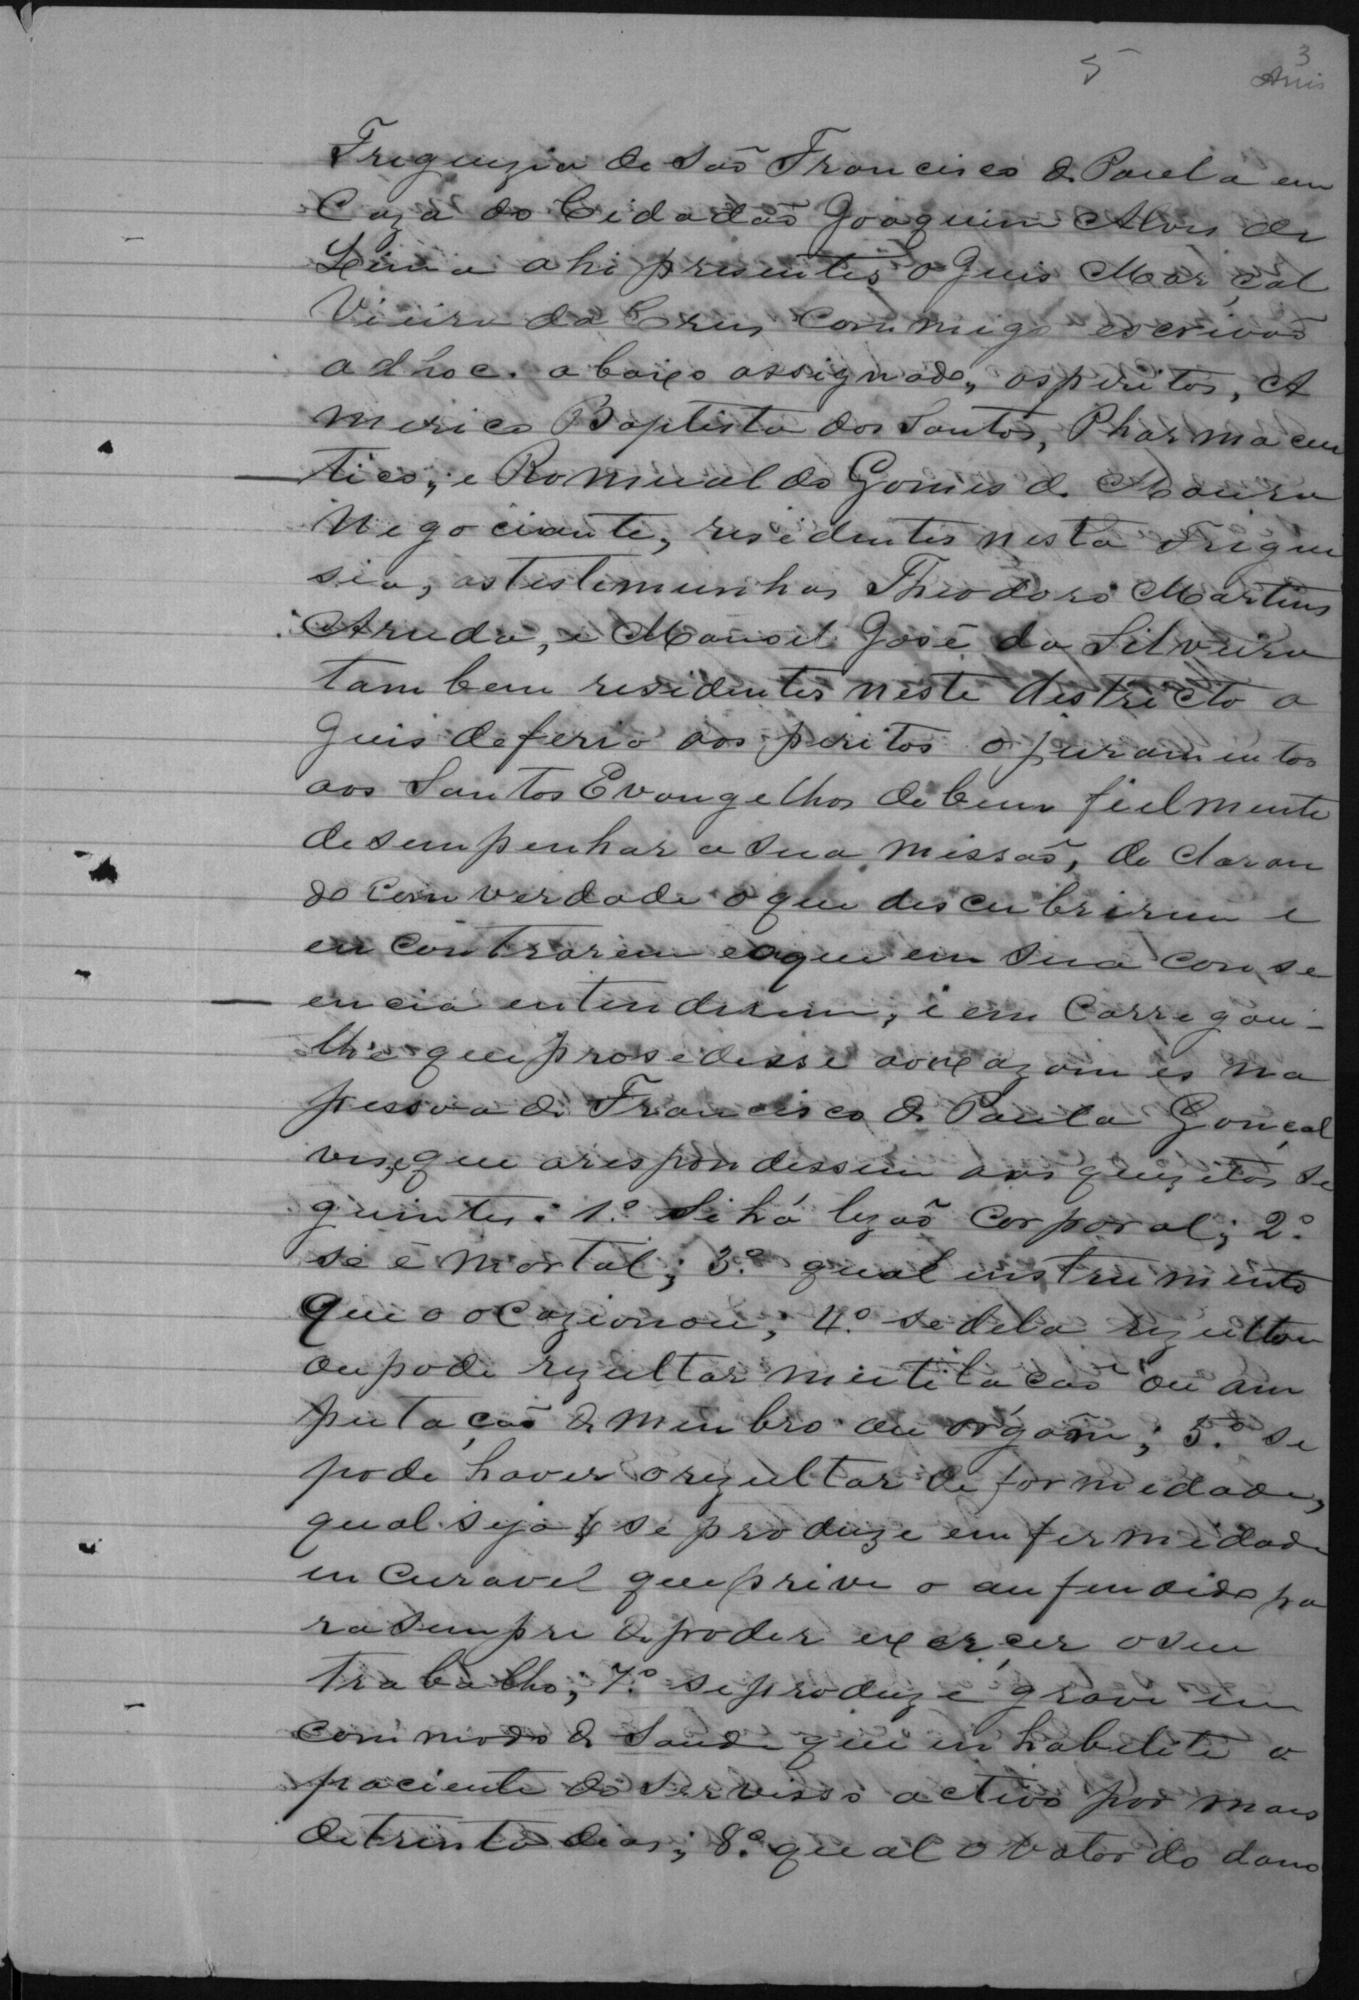 5
3
Freguezia de São Francisco de Paula em
Caza do Cidadão Joaquim Alves de
Lima ahi presentes o Juis Marçal
Vieira da Crus commigo escrivão
adhoc. abaixo assignado, os peritos, A
merico Baptista dos Santos, Pharmaceu
tico, e Romualdo Gomes de Moura
Negociante, residentes nesta Fregue
sia, as testemunhas Theodoro Martins
Arruda, e Manoel José da Silveira
tambem residentes neste districto o
Juis deferio aos peritos o juramentos
aos Santos Evangelhos de bem fielmente
desempenhar a sua missão, declaran
do com verdade o que descubrirem e
encontrarem e o que em sua conse
encia entenderem, i em carregou-
lhe que prosedesse ao exazames na
pessoa de Francisco de Paula Gonçal
ves, e que a respondessem aos quezitos se
guintes: 1.º Si há lezaõ corporal; 2.º
se é mortal; 3.º qual instrumento
que o ocazionou; 4.º se dela rezultou
ou pode rezultar mutilacaõ ou am
putaçaõ de membro ou orgaõm; 5.º se
pode haver o rezultar deformidade,
qual seja se produze emfermidade
incuravel que prive o aufendido pa
ra sempre de poder exercer o seu
trabalho; 7.º se produze grave in
commodo de Saude que inhabelite o
paciente do servisso activo por mais
de trinta dias; 8.º qual o valor do dano